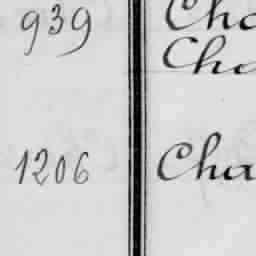 939 Cha
Cha
1206 Cha